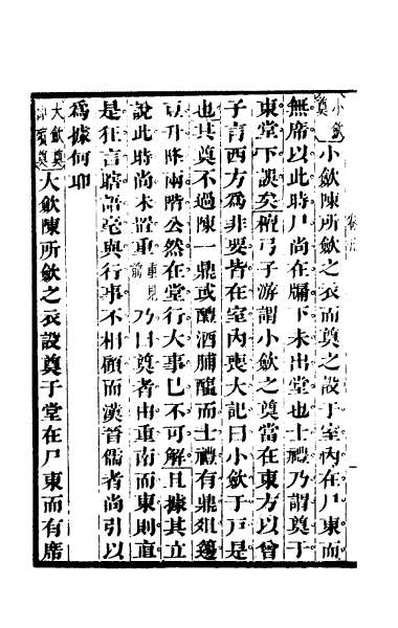 小斂奠 小斂陳所斂之衣而奠之設于室內在尸東而
無席以此時尸尚在牖下未出堂也士禮乃謂奠于
東堂下誤矣檀弓子游謂小斂之奠當在東方以曾
子言西方為非要皆在室內喪大記曰小斂于戸是
也其奠不過陳一鼎或醴酒脯醢而士禮有鼎俎籩
豆升降兩階公然在堂行大事已不可解且據其立
說此時尚未置重重見前乃曰奠者由重南而東則直
是狂言囈語毫與行事不相顧而漢晉儒者尚引以
為據何耶
大斂奠 大斂陳所斂之衣設奠于堂在尸東而有席